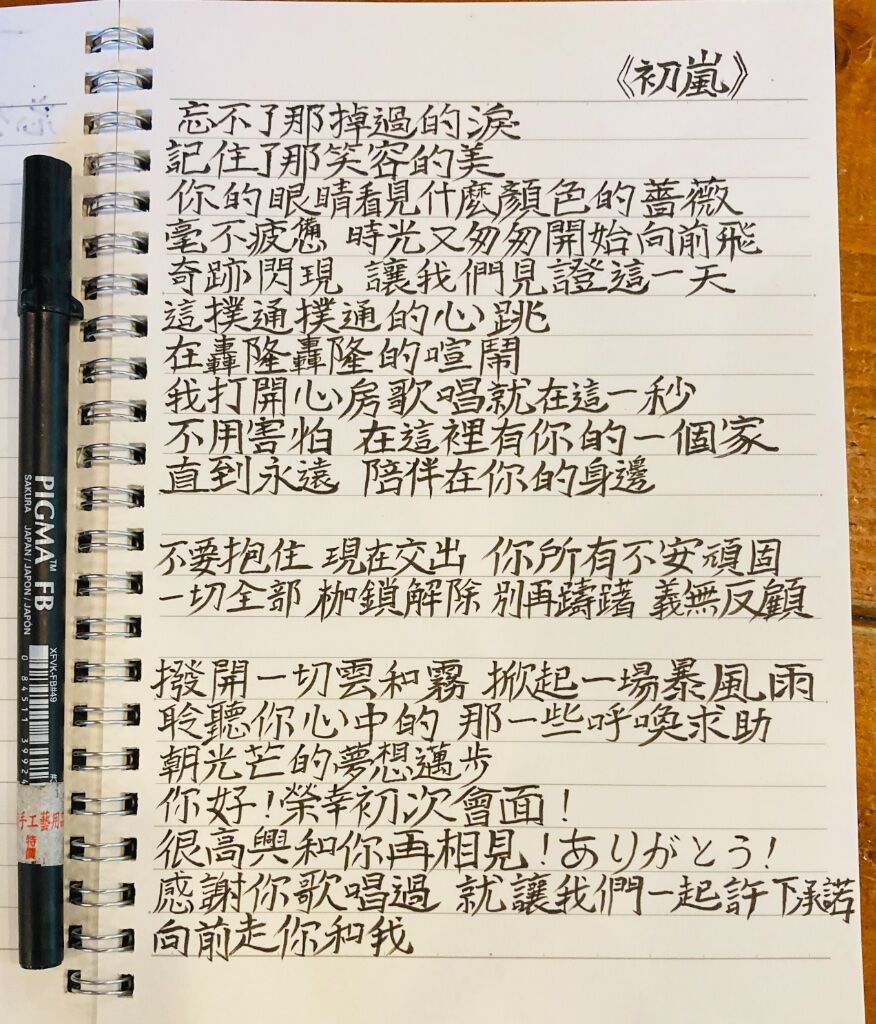 《初嵐》
忘不了那掉過的淚
記住了那笑容的美
你的眼睛看見什麼顏色的薔薇
毫不疲憊 時光又匆匆開始向前飛
奇跡閃現 讓我們見證這一天
這撲通撲通的心跳
在轟隆轟隆的喧鬧
我打開心房歌唱就在這一秒
不用害怕 在這裡有你的一個家
直到永遠 陪伴在你的身邊
不要抱住 現在交出 你所有不安頑固
一切全部 枷鎖解除 別再躊躇 義無反顧
撥開一切雲和霧 掀起一場暴風雨
聆聽你心中的 那一些呼喚求助
朝光芒的夢想邁步
你好!榮幸初次會面!
很高興和你再相見!ありがとう!
感謝你歌唱過 就讓我們一起許下承諾
向前走你和我
PIGMA™ FB
SAKURA JAPAN/JAPON/JAPÓN
XFVK-FB#49
0 84511 39924
手工藝用品
特價